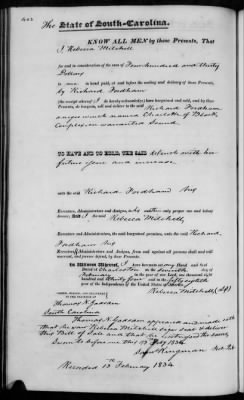 The State of South-Carolina.
KNOW ALL MEN by these Presents, That
I Rebecca Mitchell
for and in consideration of the sum of Four hundred and thirty
Dollars
to me in hand paid, at and before the sealing and delivery of these Presents,
by Richard Fordham
(the receipt whereof I do hereby acknowledge) have bargained and sold, and by these
Presents, do bargain, sell and deliver to the said Richard Fordham
wench named Charlotte of Black
Complexion warranted Sound
TO HAVE AND TO HOLD, THE SAID wench with her
future issue and increase
unto the said Richard Fordham his
Executors, Administrators and Assigns, to his and their only proper use and behoof
forever, And I the said Rebecca Mitchell, my
Executors and Administrators, the said bargained premises, unto the said Richard
Fordham his
Executors, Administrators and Assigns, from and against all persons shall and will
warrant, and forever defend, by these Presents.
In Witness Whereof, I have hereunto set my Hand and Seal
Dated at Charleston on the seventh day of
February in the year of our Lord, one thousand eight
hundred and thirty four and in the fifty eighth
year of the Independence of the United States of America.
Rebecca Mitchell (LS)
SIGNED, SEALED, AND DELIVERED
IN THE PRESENCE OF
Thomas N. Gadsden
South Carolina
Thomas N. Gadsden appeared and made oath
that he saw Rebecca Mitchell sign seal & deliver
this Bill of Sale and that he witnessed the same
Sworn to before me this 13 Feby 1834
Kingman
Recorded 13 February 1834